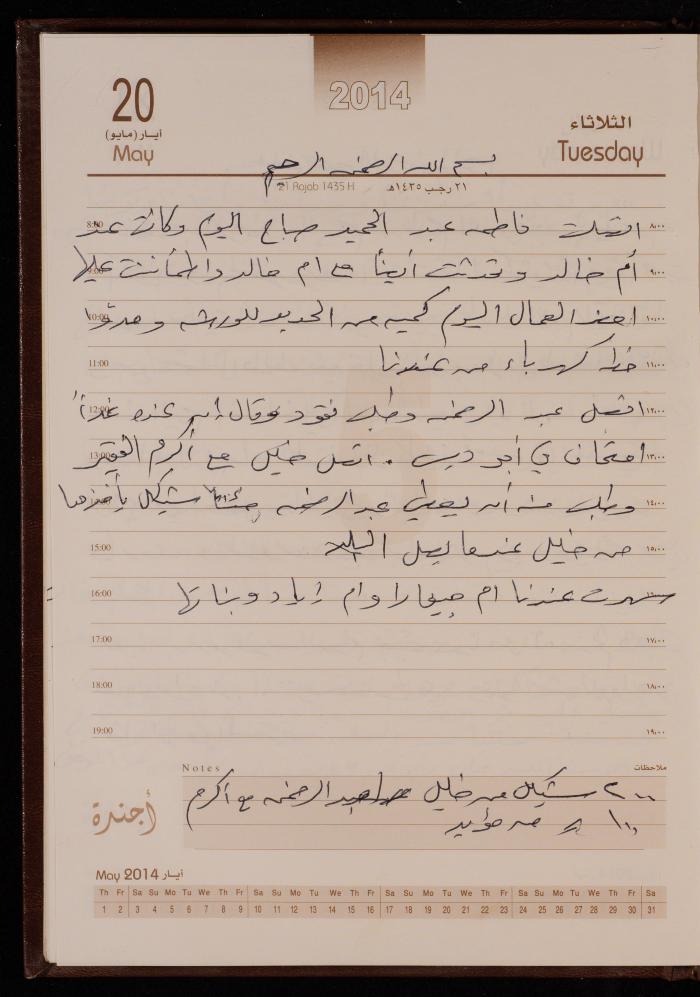 2014
20
أيار (مايو)
May
الثلاثاء
Tuesday
بسم الله الرحمن الرحيم
21 Rajab 1435 H
٢١ رجب ١٤٣٥هـ
8:00 اتصلت فاطمه عبد الحميد صباح اليوم وكانت عند ٨،٠٠
9:00 أم خالد وتحدثت أيضاً مع ام خالد واطمأننت عليها ٩،٠٠
10:00 احضر العمال اليوم كميه من الحديد للورشه ومدّوا ١٠،٠٠
11:00 خط كهرباء من عندنا ١١،٠٠
12:00 اتصل عبد الرحمن وطلب نقود وقال انه عنده غداً ١٢،٠٠
13:00 امتحان في أبو ديس . اتصل خليل مع أكرم ١٣،٠٠
وطلب منه أن يعطي عبد الرحمن مئتا شيكل يأخذها ١٤،٠٠
15:00 من خليل عندما يصل البلد ١٥،٠٠
16:00 سهرت عندنا ام جيفارا وام اياد وبناتها
17:00 ١٧،٠٠
18:00 ١٨،٠٠
19:00 ١٩،٠٠
Notes ملاحظات
٢٠٠ شيكل من خليل لعبد الرحمن مع أكرم
١٠٠ من مؤيد
أجندة
May 2014 أيار
Th Fr Sa Su Mo Tu We Th Fr Sa Su Mo Tu We Th Fr Sa Su Mo Tu We Th Fr Sa Su Mo Tu We Th Fr Sa
1 2 3 4 5 6 7 8 9 10 11 12 13 14 15 16 17 18 19 20 21 22 23 24 25 26 27 28 29 30 31